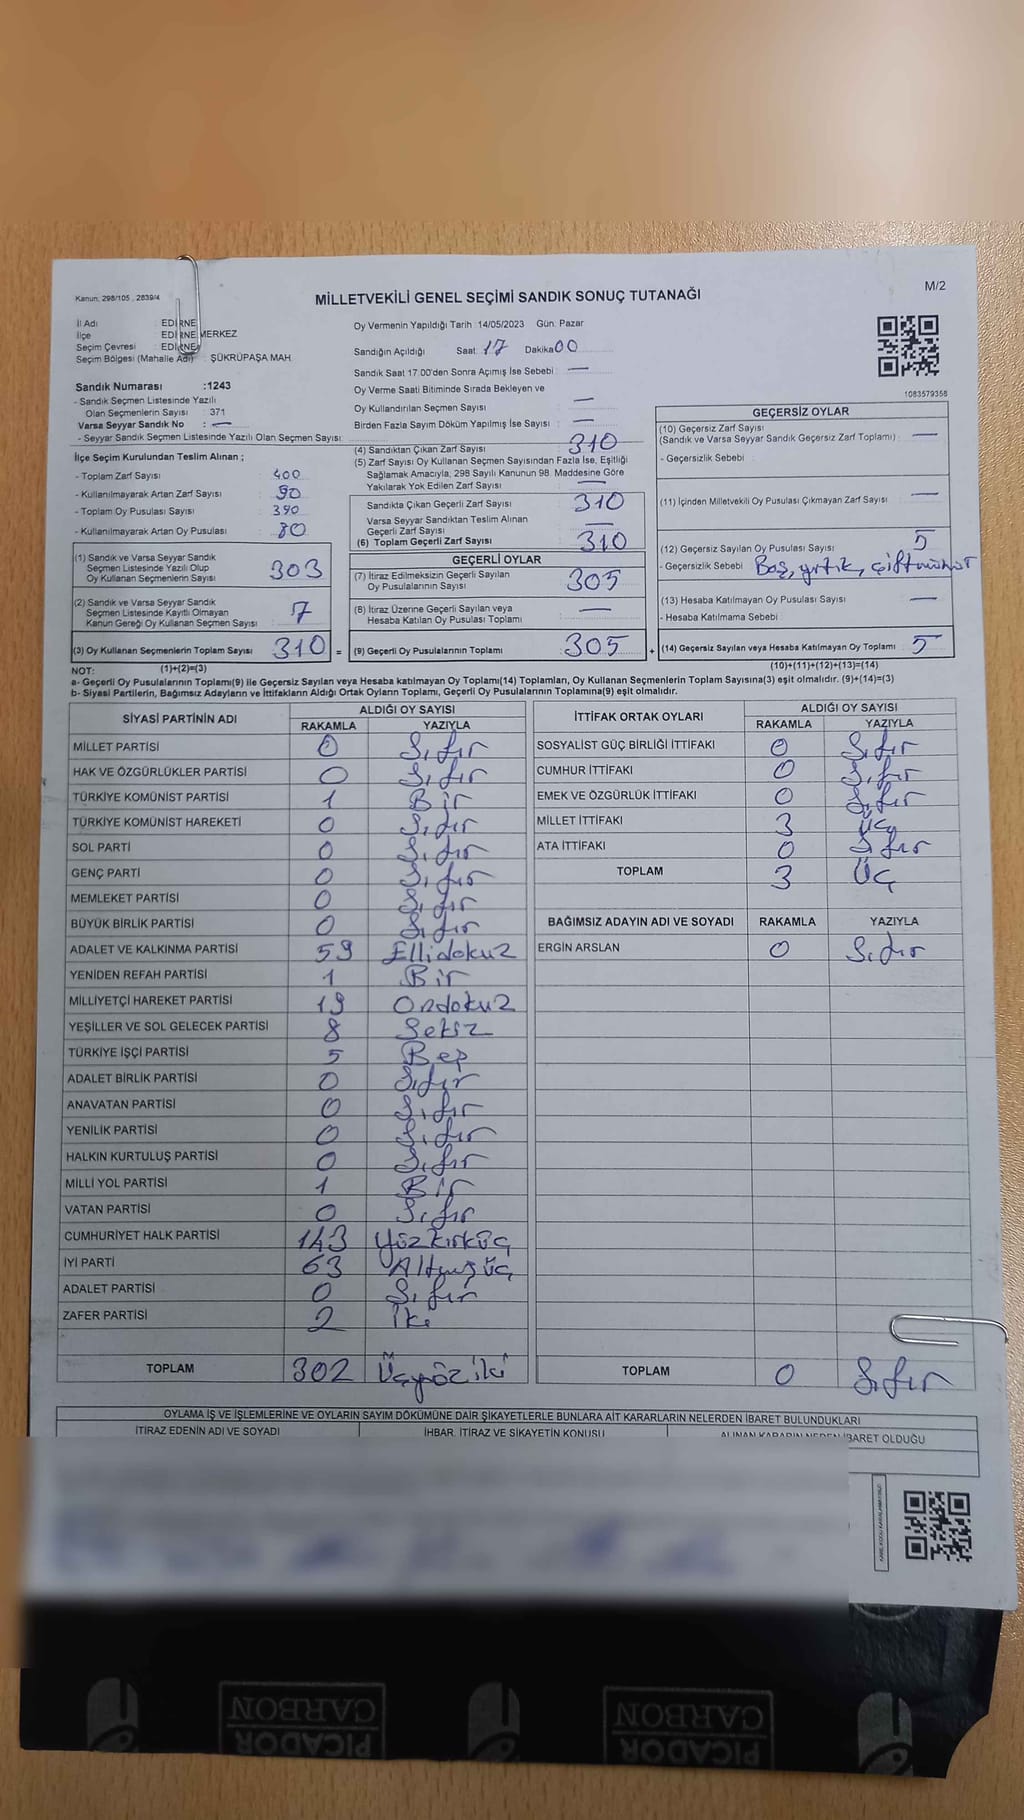 Kanun, 298/105 , 2839/4
MİLLETVEKİLİ GENEL SEÇİMİ SANDIK SONUÇ TUTANAĞI
M/2
İl Adı : EDİRNE
İlçe : EDİRNE MERKEZ
Seçim Çevresi : EDİRNE
Seçim Bölgesi (Mahalle Adı) : ŞÜKRÜPAŞA MAH.
Oy Vermenin Yapıldığı Tarih :14/05/2023 Gün: Pazar
Sandığın Açıldığı Saat: 17 Dakika 00
Sandık Saat 17:00'den Sonra Açımış İse Sebebi : —
Oy Verme Saati Bitiminde Sırada Bekleyen ve
Oy Kullandırılan Seçmen Sayısı : —
Birden Fazla Sayım Döküm Yapılmış İse Sayısı : —
1083579358
Sandık Numarası :1243
- Sandık Seçmen Listesinde Yazılı
Olan Seçmenlerin Sayısı : 371
Varsa Seyyar Sandık No : —
- Seyyar Sandık Seçmen Listesinde Yazılı Olan Seçmen Sayısı :
İlçe Seçim Kurulundan Teslim Alınan ;
- Toplam Zarf Sayısı : 400
- Kullanılmayarak Artan Zarf Sayısı : 90
- Toplam Oy Pusulası Sayısı : 390
- Kullanılmayarak Artan Oy Pusulası : 80
(1) Sandık ve Varsa Seyyar Sandık
Seçmen Listesinde Yazılı Olup
Oy Kullanan Seçmenlerin Sayısı : 303
(2) Sandık ve Varsa Seyyar Sandık
Seçmen Listesinde Kayıtlı Olmayan
Kanun Gereği Oy Kullanan Seçmen Sayısı : 7
(3) Oy Kullanan Seçmenlerin Toplam Sayısı : 310 =
(4) Sandıktan Çıkan Zarf Sayısı : 310
(5) Zarf Sayısı Oy Kullanan Seçmen Sayısından Fazla İse, Eşitliği
Sağlamak Amacıyla, 298 Sayılı Kanunun 98. Maddesine Göre
Yakılarak Yok Edilen Zarf Sayısı : —
Sandıkta Çıkan Geçerli Zarf Sayısı : 310
Varsa Seyyar Sandıktan Teslim Alınan
Geçerli Zarf Sayısı : —
(6) Toplam Geçerli Zarf Sayısı : 310
GEÇERLİ OYLAR
(7) İtiraz Edilmeksizin Geçerli Sayılan
Oy Pusulalarının Sayısı : 305
(8) İtiraz Üzerine Geçerli Sayılan veya
Hesaba Katılan Oy Pusulası Toplamı : —
(9) Geçerli Oy Pusulalarının Toplamı : 305 +
GEÇERSİZ OYLAR
(10) Geçersiz Zarf Sayısı
(Sandık ve Varsa Seyyar Sandık Geçersiz Zarf Toplamı) : —
- Geçersizlik Sebebi :
(11) İçinden Milletvekili Oy Pusulası Çıkmayan Zarf Sayısı : —
(12) Geçersiz Sayılan Oy Pusulası Sayısı : 5
- Geçersizlik Sebebi : Boş, yırtık, çift mühür
(13) Hesaba Katılmayan Oy Pusulası Sayısı : —
- Hesaba Katılmama Sebebi :
(14) Geçersiz Sayılan veya Hesaba Katılmayan Oy Toplamı : 5
NOT: (1)+(2)=(3) (10)+(11)+(12)+(13)=(14)
a- Geçerli Oy Pusulalarının Toplamı(9) ile Geçersiz Sayılan veya Hesaba katılmayan Oy Toplamı(14) Toplamları, Oy Kullanan Seçmenlerin Toplam Sayısına(3) eşit olmalıdır. (9)+(14)=(3)
b- Siyasi Partilerin, Bağımsız Adayların ve İttifakların Aldığı Ortak Oyların Toplamı, Geçerli Oy Pusulalarının Toplamına(9) eşit olmalıdır.
SİYASİ PARTİNİN ADI ALDIĞI OY SAYISI
RAKAMLA YAZIYLA
MİLLET PARTİSİ 0 Sıfır
HAK VE ÖZGÜRLÜKLER PARTİSİ 0 Sıfır
TÜRKİYE KOMÜNİST PARTİSİ 1 Bir
TÜRKİYE KOMÜNİST HAREKETİ 0 Sıfır
SOL PARTİ 0 Sıfır
GENÇ PARTİ 0 Sıfır
MEMLEKET PARTİSİ 0 Sıfır
BÜYÜK BİRLİK PARTİSİ 0 Sıfır
ADALET VE KALKINMA PARTİSİ 59 Ellidokuz
YENİDEN REFAH PARTİSİ 1 Bir
MİLLİYETÇİ HAREKET PARTİSİ 19 Ondokuz
YEŞİLLER VE SOL GELECEK PARTİSİ 8 Sekiz
TÜRKİYE İŞÇİ PARTİSİ 5 Beş
ADALET BİRLİK PARTİSİ 0 Sıfır
ANAVATAN PARTİSİ 0 Sıfır
YENİLİK PARTİSİ 0 Sıfır
HALKIN KURTULUŞ PARTİSİ 0 Sıfır
MİLLİ YOL PARTİSİ 1 Bir
VATAN PARTİSİ 0 Sıfır
CUMHURİYET HALK PARTİSİ 143 Yüzkırküç
İYİ PARTİ 63 Altmışüç
ADALET PARTİSİ 0 Sıfır
ZAFER PARTİSİ 2 İki
TOPLAM 302 Üçyüziki
İTTİFAK ORTAK OYLARI ALDIĞI OY SAYISI
RAKAMLA YAZIYLA
SOSYALİST GÜÇ BİRLİĞİ İTTİFAKI 0 Sıfır
CUMHUR İTTİFAKI 0 Sıfır
EMEK VE ÖZGÜRLÜK İTTİFAKI 0 Sıfır
MİLLET İTTİFAKI 3 Üç
ATA İTTİFAKI 0 Sıfır
TOPLAM 3 Üç
BAĞIMSIZ ADAYIN ADI VE SOYADI RAKAMLA YAZIYLA
ERGİN ARSLAN 0 Sıfır
TOPLAM 0 Sıfır
OYLAMA İŞ VE İŞLEMLERİNE VE OYLARIN SAYIM DÖKÜMÜNE DAİR ŞİKAYETLERLE BUNLARA AİT KARARLARIN NELERDEN İBARET BULUNDUKLARI
İTİRAZ EDENİN ADI VE SOYADI İHBAR, İTİRAZ VE ŞİKAYETİN KONUSU ALINAN KARARIN NEDEN İBARET OLDUĞU
CARBON
PICADOR
CARBON
PICADOR